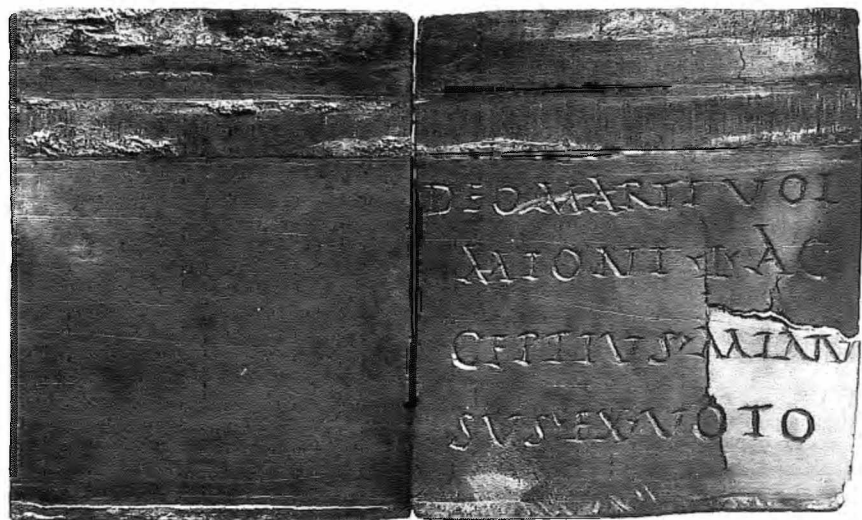 DEO MARTI VOL
MIONI L AC
CEPTIVS MIAN
SVS EX VOTO